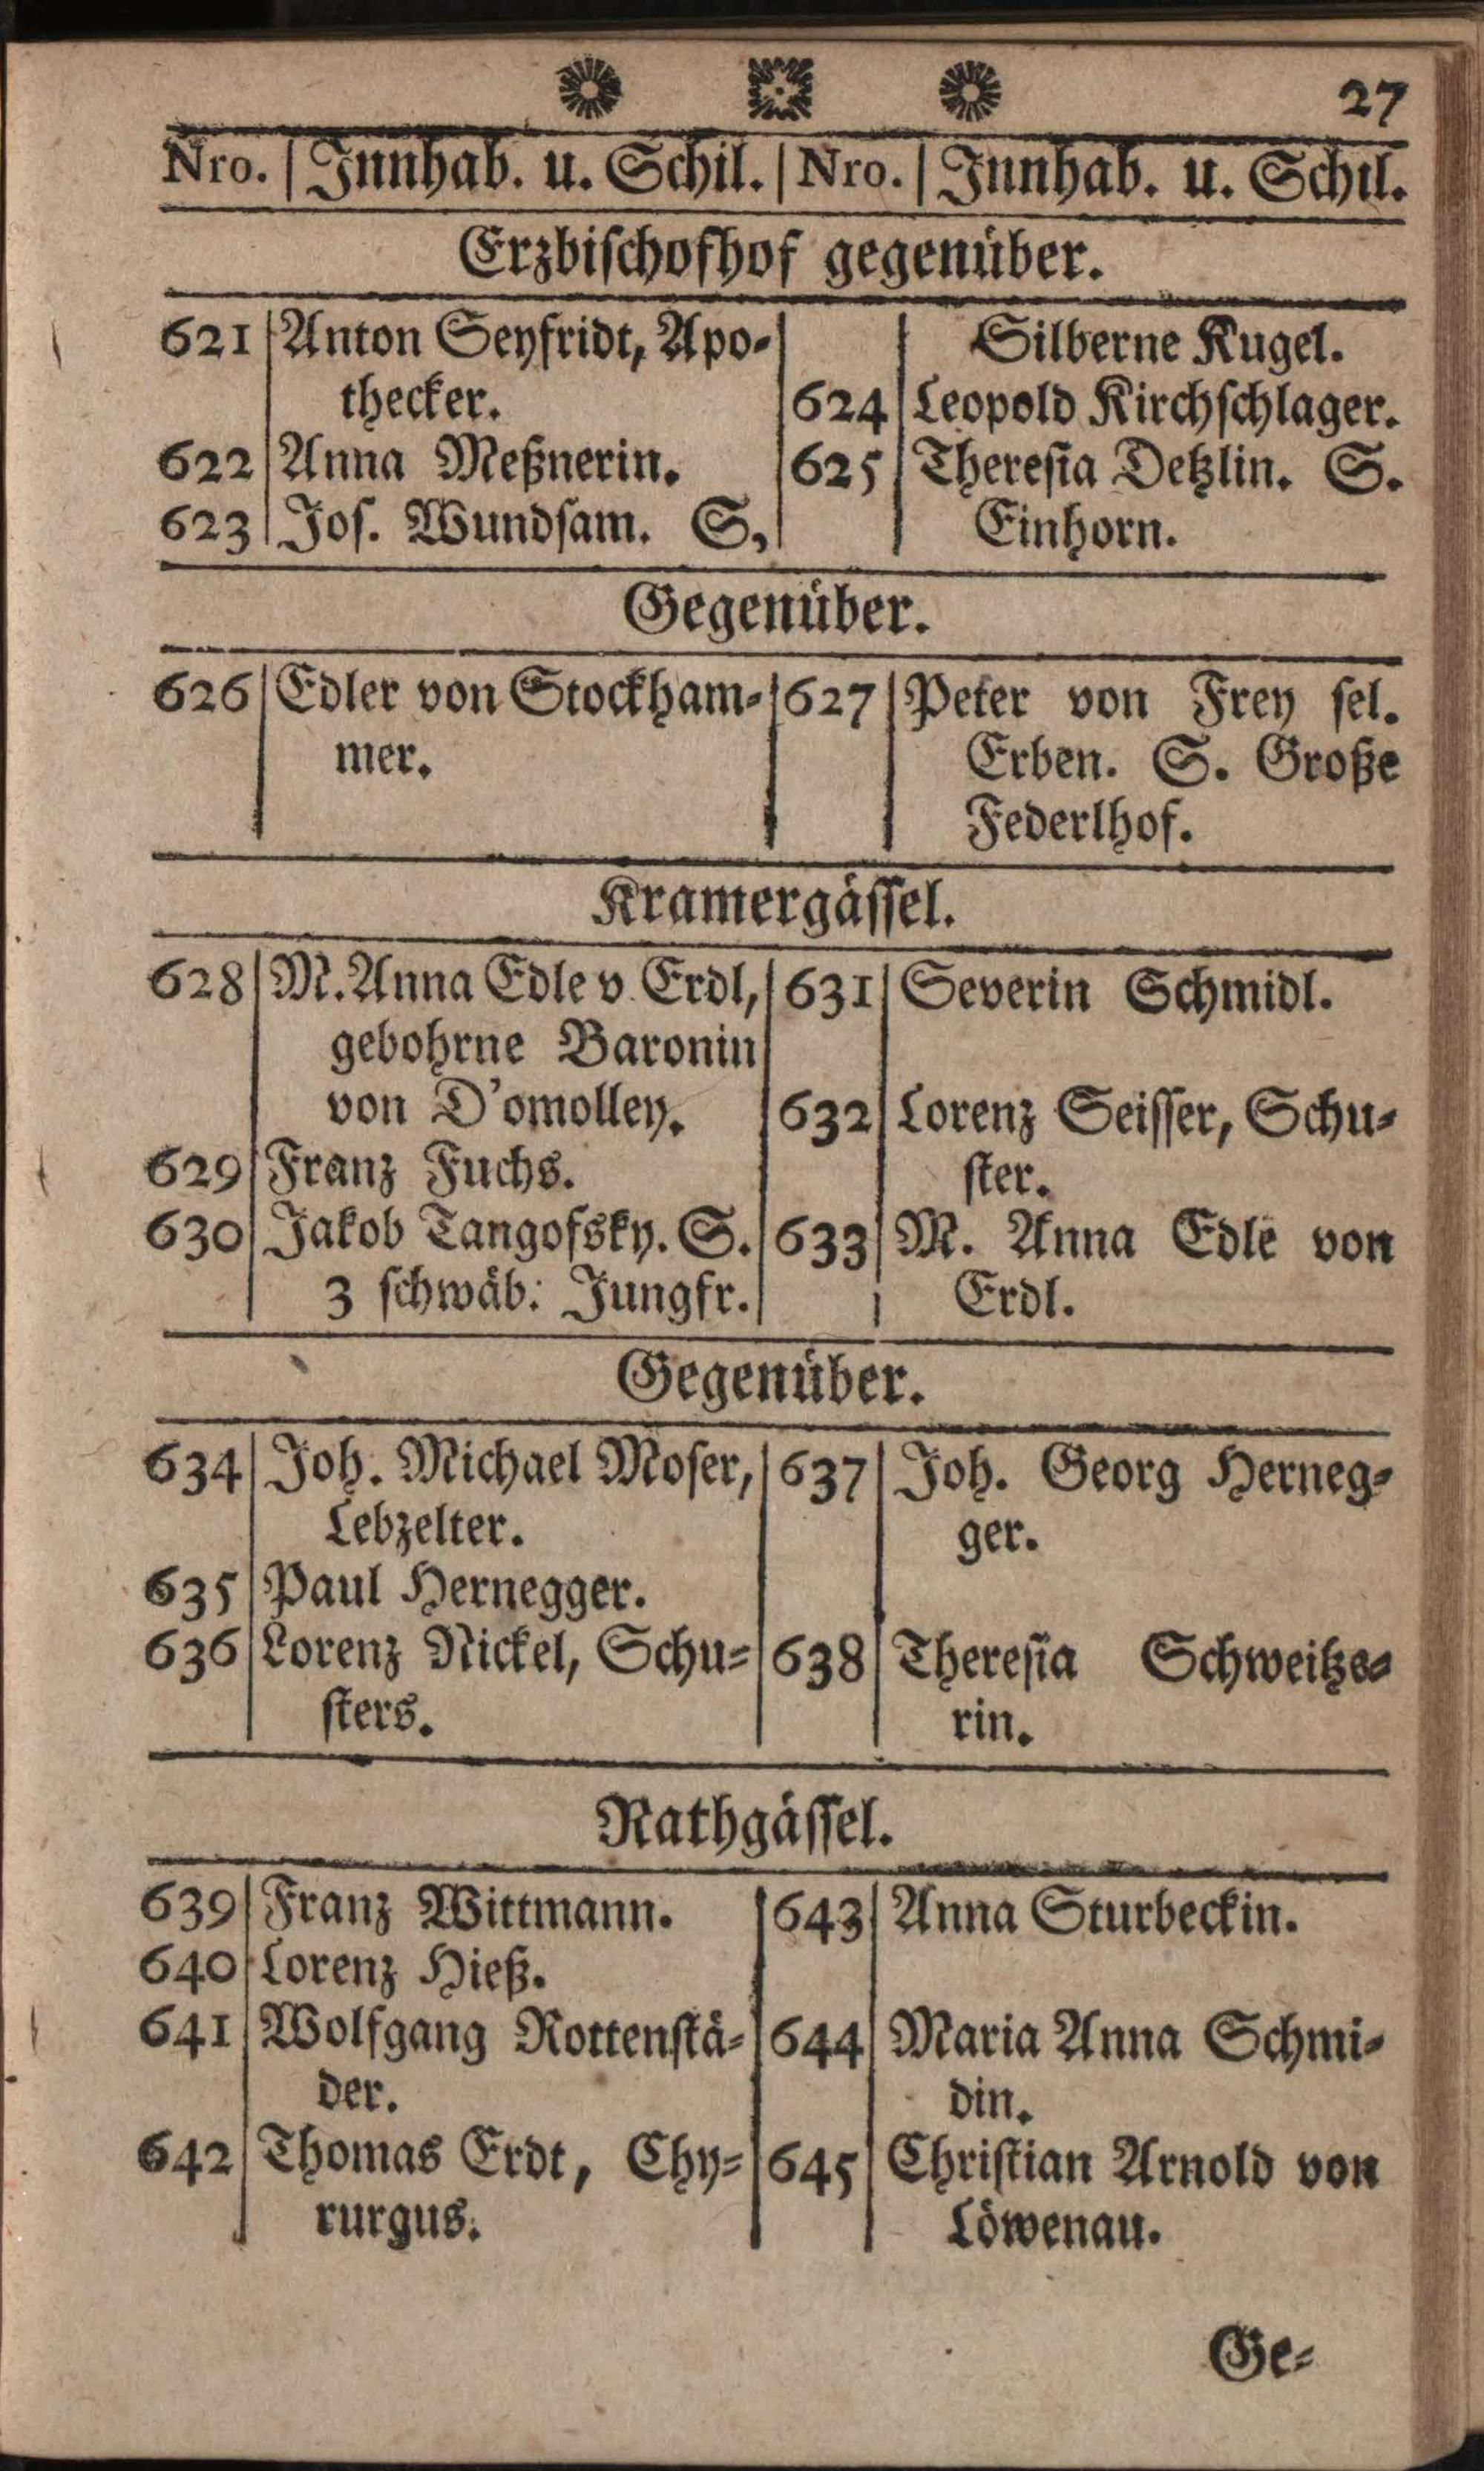 27
Nro. | Innhab. u. Schil. | Nro. | Innhab. u. Schil.
Erzbischofhof gegenüber.
621 Anton Seyfridt, Apo-
thecker.
622 Anna Meßnerin.
623 Jos. Wundsam. S,
Silberne Kugel.
624 Leopold Kirchschlager.
625 Theresia Detzlin. S.
Einhorn.
Gegenüber.
626 Edler von Stockham-
mer.
627 Peter von Frey sel.
Erben. S. Große
Federlhof.
Kramergässel.
628 M. Anna Edle v. Erdl,
gebohrne Baronin
von D'omolley.
629 Franz Fuchs.
630 Jakob Tangofsky. S.
3 schwäb: Jungfr.
631 Severin Schmidl.
632 Lorenz Seisser, Schu-
ster.
633 M. Anna Edle von
Erdl.
Gegenüber.
634 Joh. Michael Moser,
Lebzelter.
635 Paul Hernegger.
636 Lorenz Nickel, Schu-
sters.
637 Joh. Georg Herneg-
ger.
638 Theresia Schweitze-
rin.
Rathgässel.
639 Franz Wittmann.
640 Lorenz Hieß.
641 Wolfgang Rottenstä-
der.
642 Thomas Erdt, Chy-
rurgus.
643 Anna Sturbeckin.
644 Maria Anna Schmi-
din.
645 Christian Arnold von
Löwenau.
Ge-